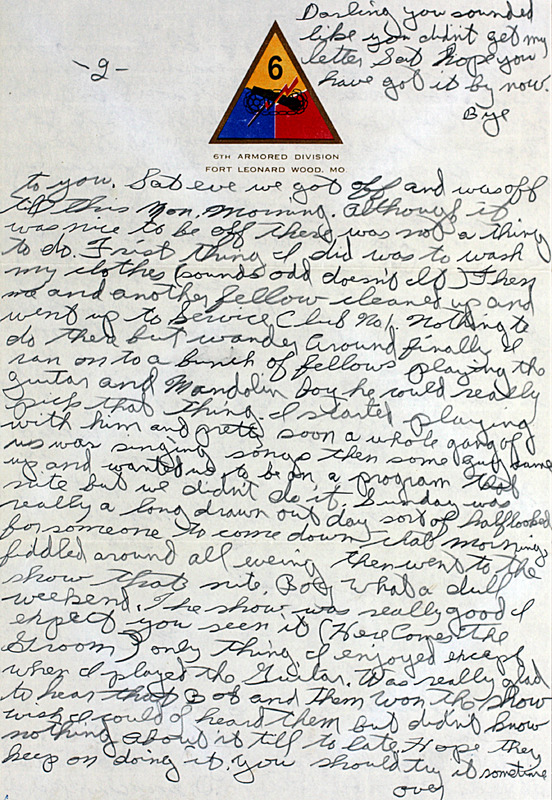 Darling you sounded
like you didn't get my
letter Sat hope you
have got it by now.
Bye
-2-
6
6TH ARMORED DIVISION
FORT LEONARD WOOD, MO.
to you. Sat eve we got off and was off
till this Mon. morning. Although it
was nice to be off there was not a thing
to do. First thing I did was to wash
my clothes (sounds odd doesn't it) Then
me and another fellow cleaned up and
went up to Service Club No 1. Nothing to
do there but wander around finally I
ran on to a bunch of fellows playing the
Guitar and Mandolin boy he could really
pick that thing. I started playing
with him and pretty soon a whole gang of
us was singing songs then some guy came
up and wanted us to be on a program that
nite but we didn't do it. Sunday was
really a long drawn out day sort of half looked
for someone to come down that morning
fiddled around all evening then went to the
show that nite. Boy what a dull
weekend. The show was really good I
expect you seen it (Here Comes the
Groom) only thing I enjoyed except
when I played the Guitar. Was really glad
to hear that Bob and them won the show
wish I could of heard them but didn't know
nothing about it till to late. Hope they
keep on doing it. You should try it sometime
over